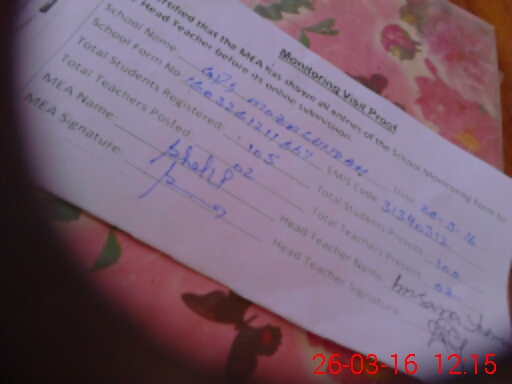 Monitoring Visit Proof
certified that the MEA has shared all entries of the School Monitoring Form to
Head Teacher before its online submission
Date: 26-3-16
School Name: GPS
School Form No.
EMIS Code: 31340312
Total Students Registered: 105
Total Students Present: 100
Total Teachers Posted: 02
Total Teachers Present: 02
MEA Name:
Head Teacher Name:
MEA Signature:
Head Teacher Signature:
26-03-16 12:15